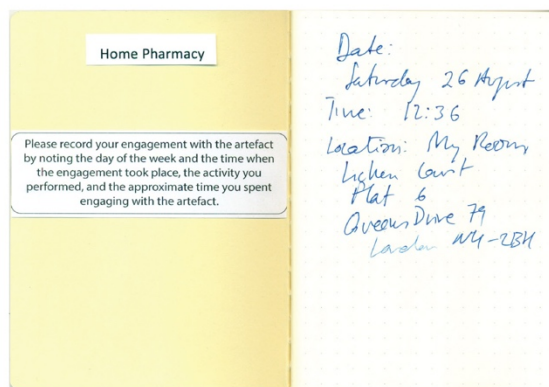 Home Pharmacy
Please record your engagement with the artefact
by noting the day of the week and the time when
the engagement took place, the activity you
performed, and the approximate time you spent
engaging with the artefact.
Date:
Saturday 26 August
Time: 12:36
Location: My Room
Court
Flat 6
Queens Drive 79
London N4-2BH